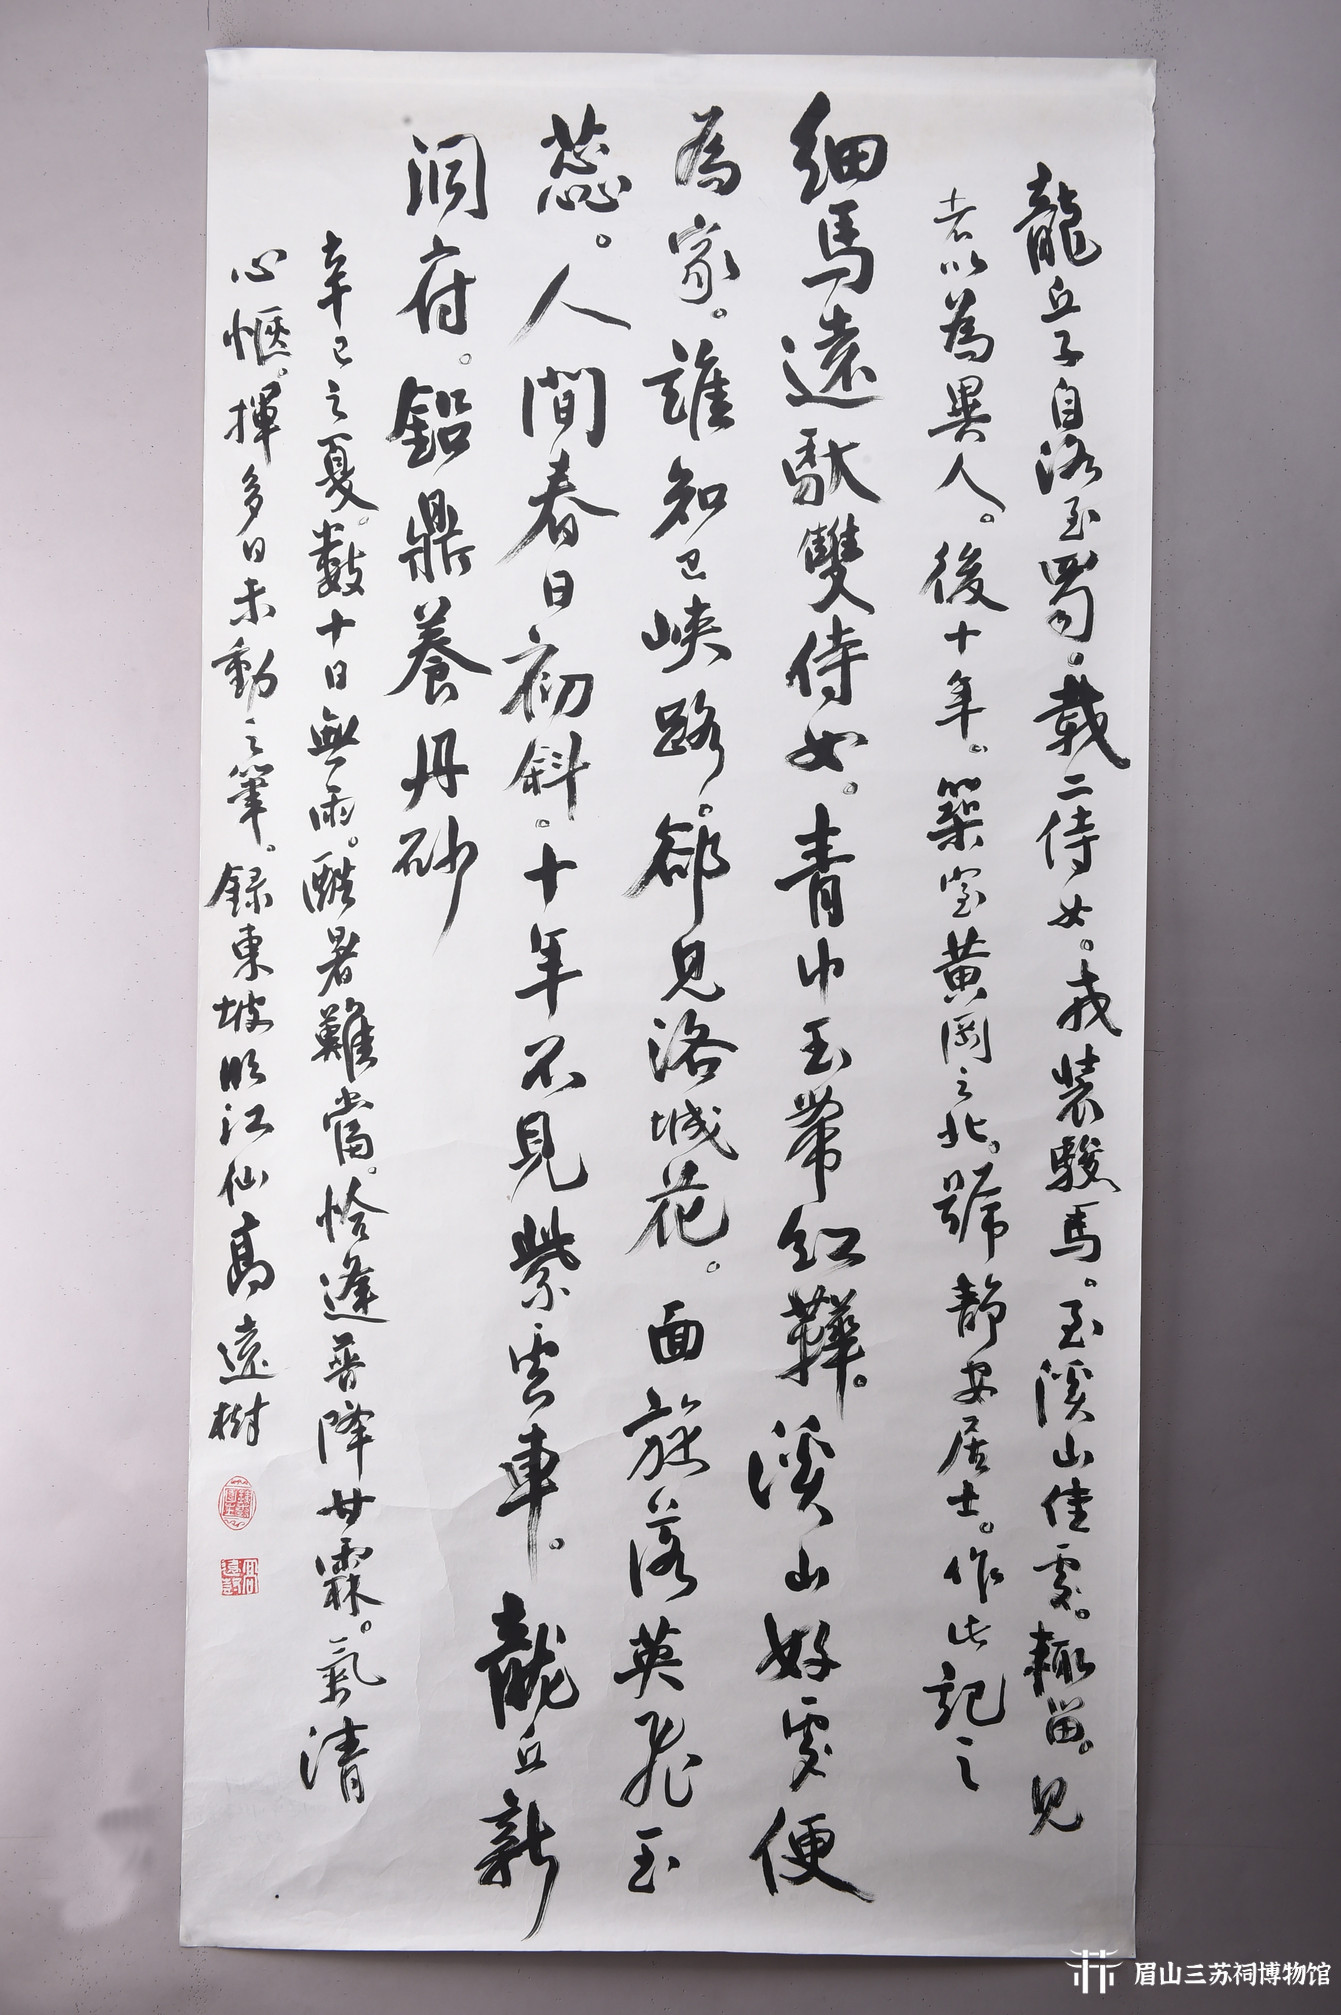 龍丘子自洛至蜀。載二侍女。戎裝駿馬。至溪山佳處。輒留。見
者以為異人。後十年。築室黃岡之北。號靜安居士。作此記之
細馬遠馱雙侍女。青巾玉帶紅鞾。溪山好處便
為家。誰知巴峽路。卻見洛城花。面旋落英飛玉
蕊。人間春日初斜。十年不見紫雲車。龍丘新
洞府。鉛鼎養丹砂
辛巳之夏。數十日無雨。酷暑難當。恰逢普降甘霖。氣清
心愜。揮多日未動之筆。録東坡臨江仙高遠樹
眉山三苏祠博物馆